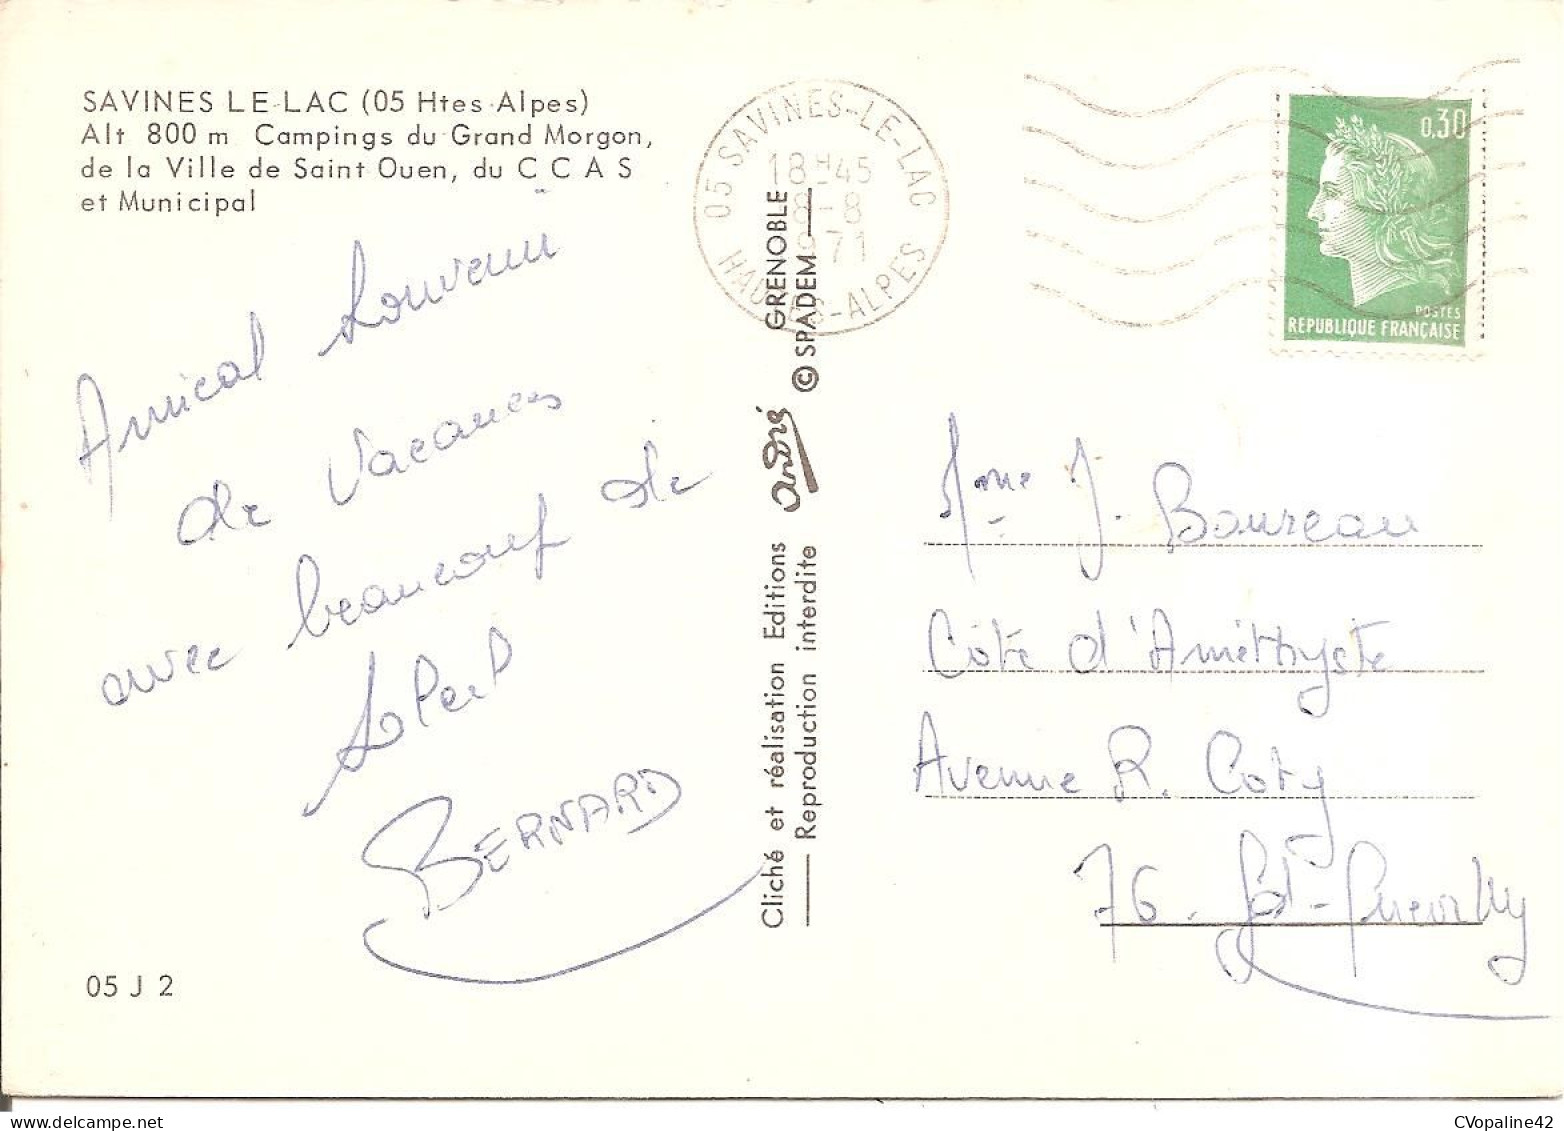 SAVINES LE LAC (05 Htes Alpes)
Alt 800 m Campings du Grand Morgon,
de la Ville de Saint Ouen, du C C A S
et Municipal
Amical Souvenir
de Vacances
avec beaucoup de
Soleil
BERNARD
05 J 2
Cliché et réalisation Editions André GRENOBLE
Reproduction interdite © SPADEM
05 SAVINES-LE-LAC
18H45
8-8
1971
HAUTES-ALPES
0,30
POSTES
REPUBLIQUE FRANÇAISE
Mme J. Boureau
Côte d'Améthyste
Avenue R. Coty
76. Gd-Quevilly
CVopaline42